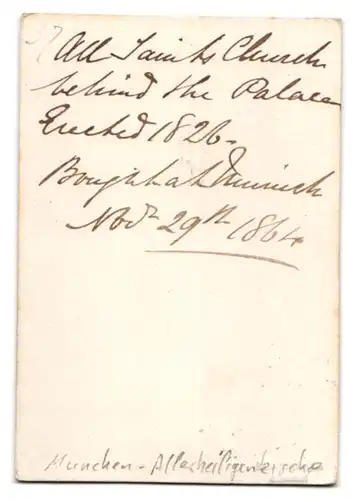 37
All Saints Church
behind the Palace
Erected 1826.
Bought at Munich
Novr 29th 1864.
München - Allerheiligenkirche